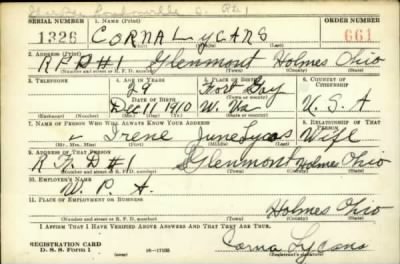 SERIAL NUMBER 1. NAME (Print) ORDER NUMBER
1326 CORNA LYCANS 661
2. ADDRESS (Print)
R F D #1 Glenmont Holmes Ohio
(Number and street or R. F. D. number) (Town) (County) (State)
3. TELEPHONE 4. AGE IN YEARS 5. PLACE OF BIRTH 6. COUNTRY OF CITIZENSHIP
29 Fort Gay
DATE OF BIRTH
Dec 11 1910 W. Va U. S. A
(Exchange) (Number) (Mo.) (Day) (Yr.) (State or country)
7. NAME OF PERSON WHO WILL ALWAYS KNOW YOUR ADDRESS 8. RELATIONSHIP OF THAT PERSON
Irene June Lycas Wife
(Mr., Mrs., Miss) (First) (Middle) (Last)
9. ADDRESS OF THAT PERSON
R F D #1 Glenmont Holmes Ohio
(Number and street or R. F. D. number) (Town) (County) (State)
10. EMPLOYER'S NAME
W. P. A.
11. PLACE OF EMPLOYMENT OR BUSINESS
Holmes Ohio
(Number and street or R. F. D. number) (Town) (County) (State)
I AFFIRM THAT I HAVE VERIFIED ABOVE ANSWERS AND THAT THEY ARE TRUE.
REGISTRATION CARD
D. S. S. Form 1 Corna Lycans
(Registrant's signature)